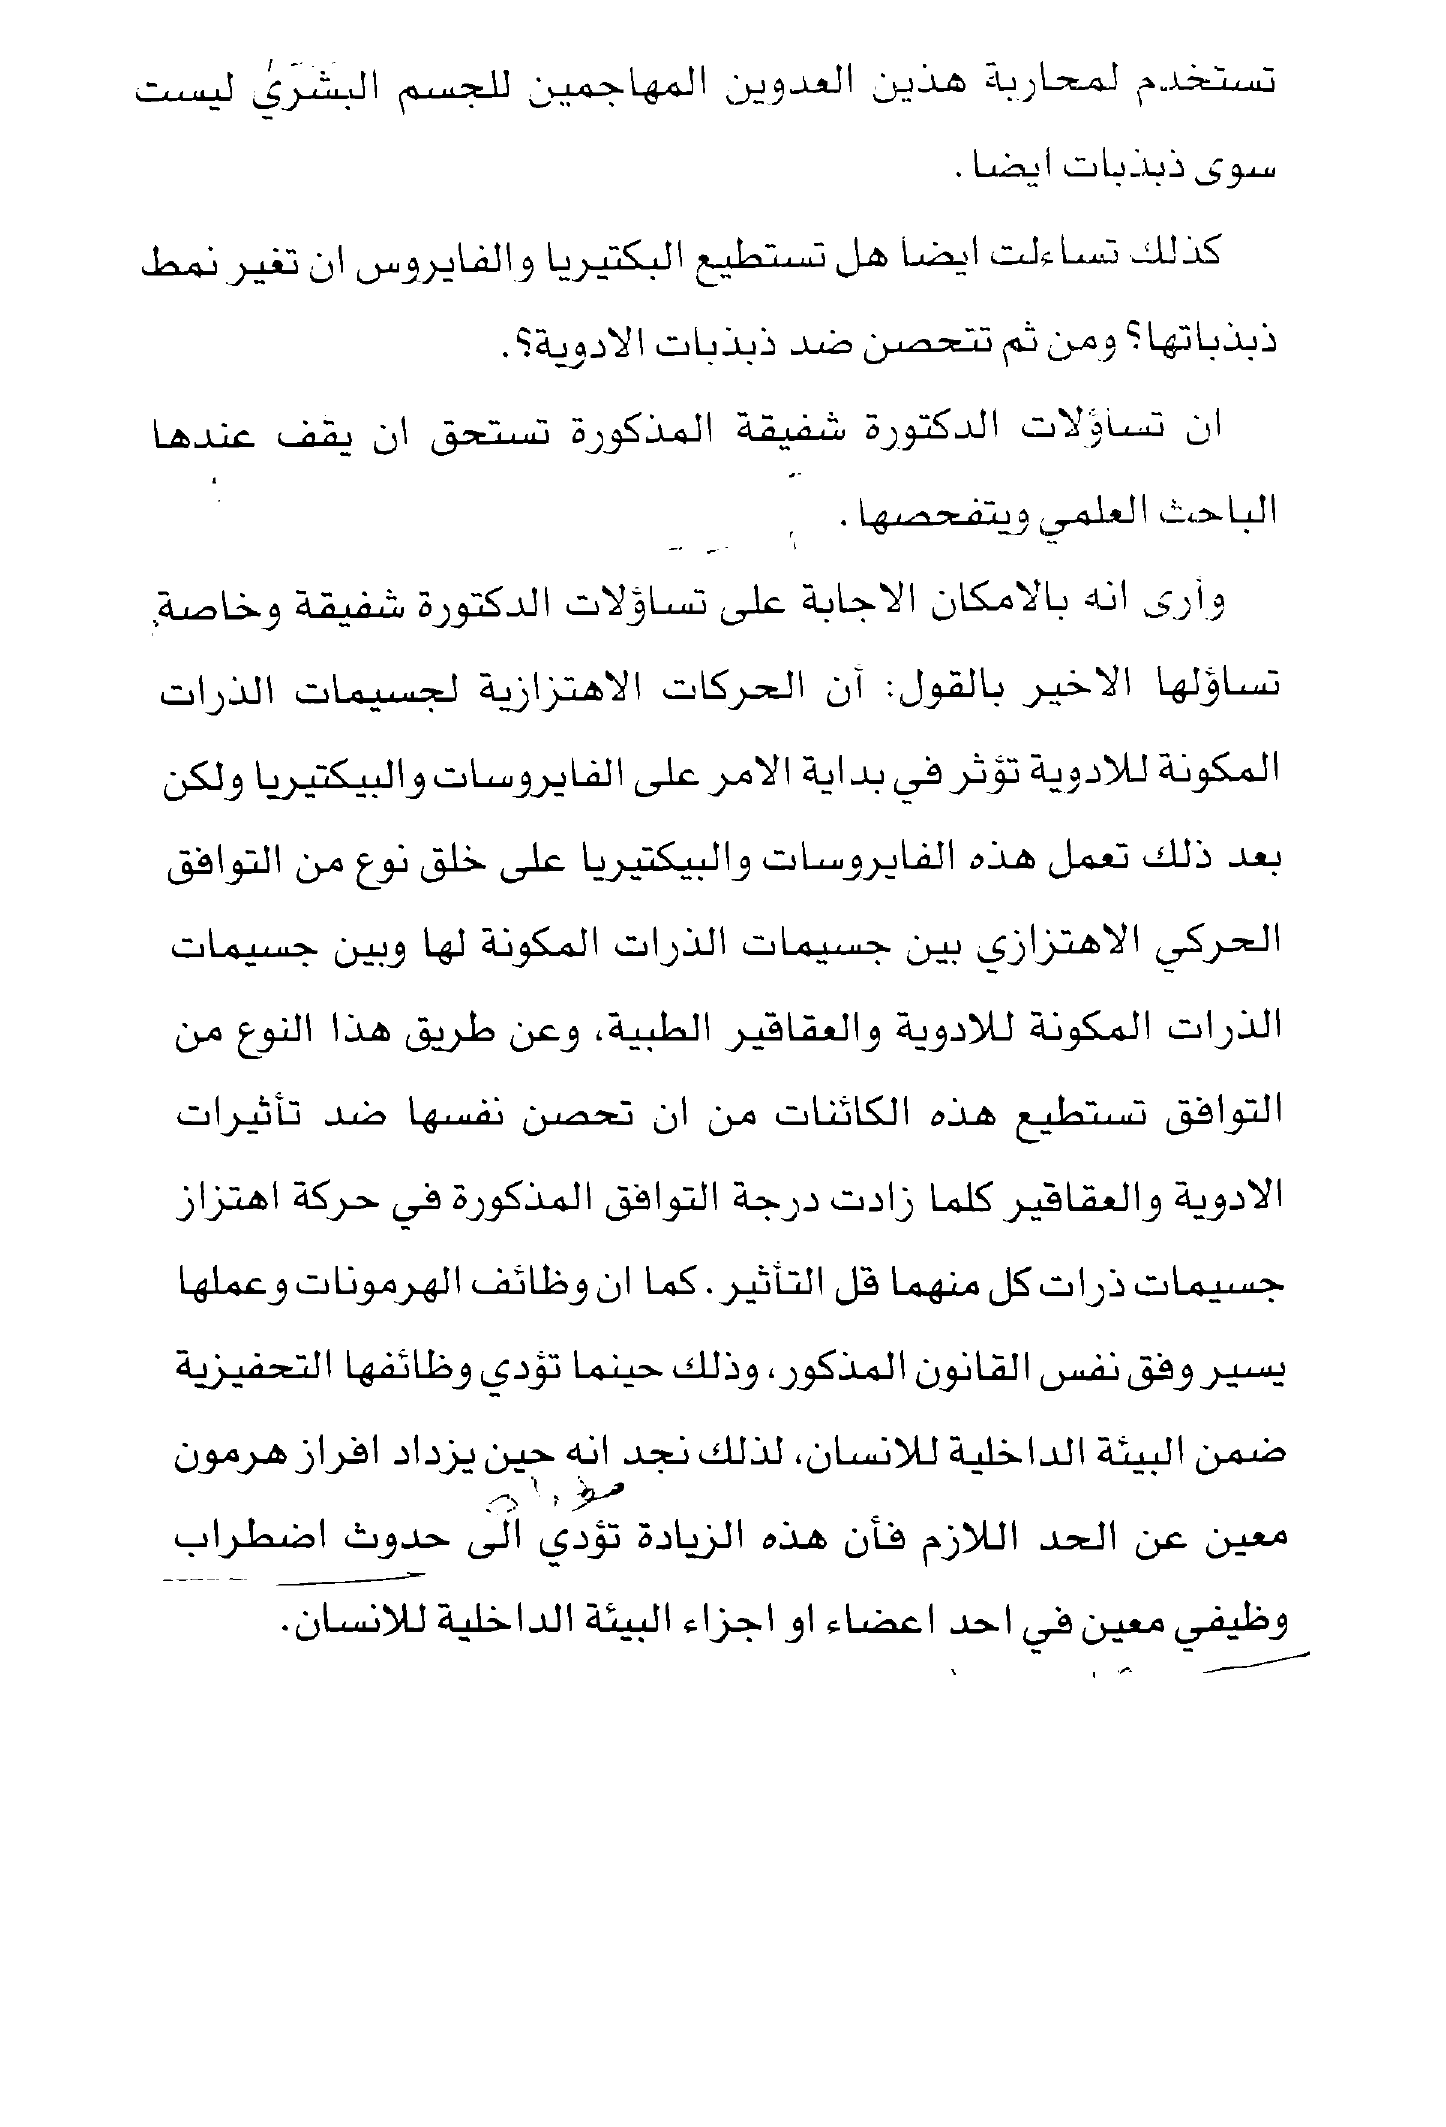 تستخدم لمحاربة هذين العدوين المهاجمين للجسم البشري ليست
سوى ذبذبات ايضا .
كذلك تساءلت ايضا هل تستطيع البكتيريا والفايروس ان تغير نمط
ذبذباتها؟ ومن ثم تتحصن ضد ذبذبات الادوية؟.
ان تساؤلات الدكتورة شفيقة المذكورة تستحق ان يقف عندها
الباحث العلمي ويتفحصها .
وأرى انه بالامكان الاجابة على تساؤلات الدكتورة شفيقة وخاصة
تساؤلها الاخير بالقول: أن الحركات الاهتزازية لجسيمات الذرات
المكونة للادوية تؤثر في بداية الامر على الفايروسات والبيكتيريا ولكن
بعد ذلك تعمل هذه الفايروسات والبيكتيريا على خلق نوع من التوافق
الحركي الاهتزازي بين جسيمات الذرات المكونة لها وبين جسيمات
الذرات المكونة للادوية والعقاقير الطبية، وعن طريق هذا النوع من
التوافق تستطيع هذه الكائنات من ان تحصن نفسها ضد تأثيرات
الادوية والعقاقير كلما زادت درجة التوافق المذكورة في حركة اهتزاز
جسيمات ذرات كل منهما قل التأثير . كما ان وظائف الهرمونات وعملها
يسير وفق نفس القانون المذكور، وذلك حينما تؤدي وظائفها التحفيزية
ضمن البيئة الداخلية للانسان، لذلك نجد انه حين يزداد افراز هرمون
معين عن الحد اللازم فأن هذه الزيادة تؤدي الى حدوث اضطراب
وظيفي معين في احد اعضاء او اجزاء البيئة الداخلية للانسان.